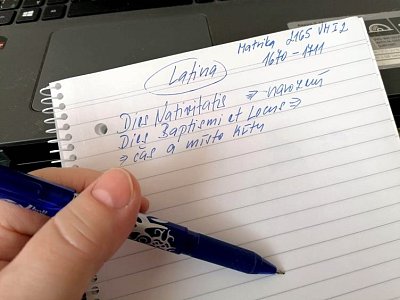 Matrika 2165 VM I 2
1670 - 1711
Latina
Dies Nativitatis => narození
Dies Baptismi et Locus =>
=> čas a místo křtu